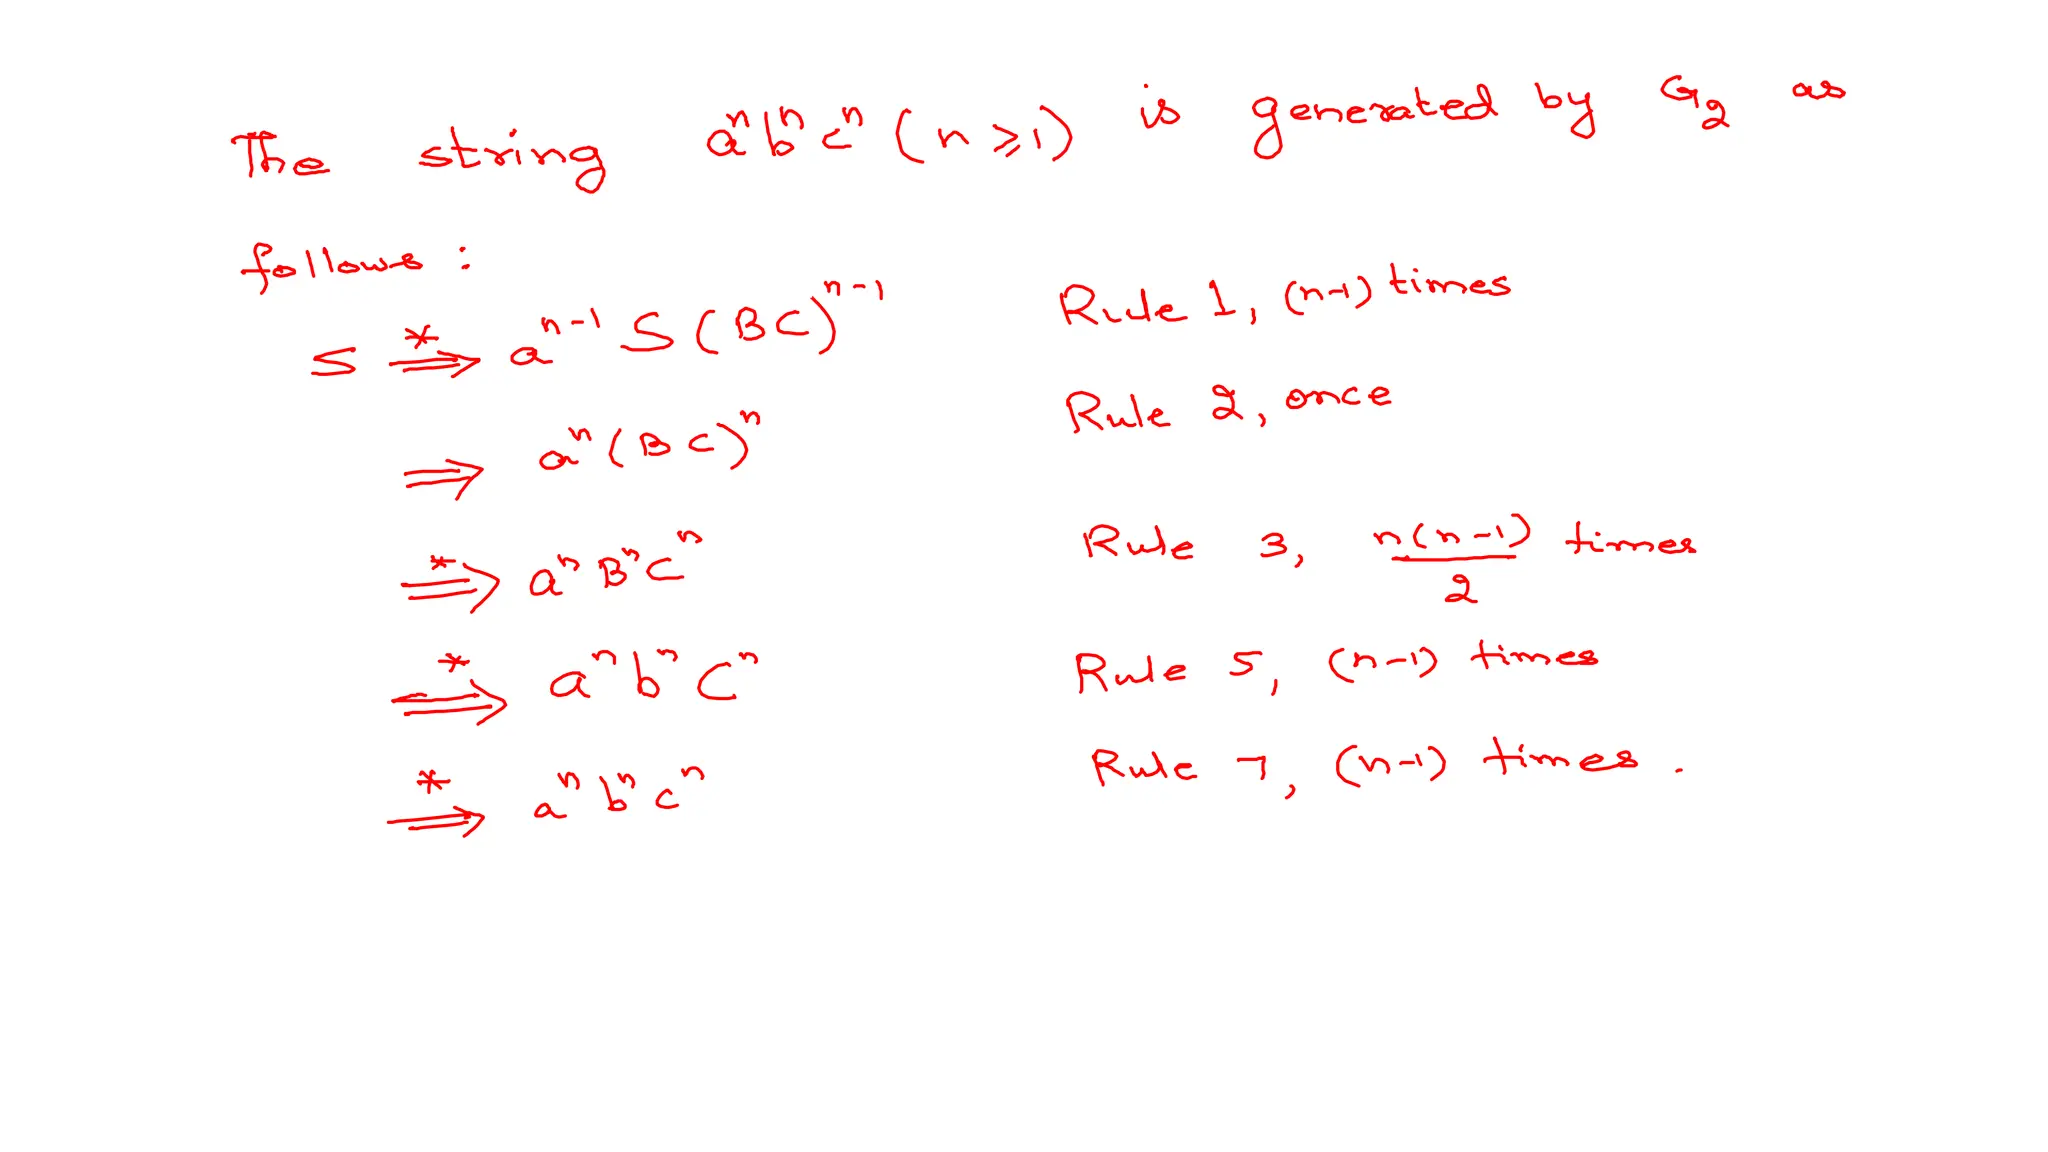 The string aⁿbⁿcⁿ (n ⩾ 1) is generated by G₂ as
follows :
S ⇒* aⁿ⁻¹ S (BC)ⁿ⁻¹ Rule 1, (n-1) times
⇒ aⁿ (BC)ⁿ Rule 2, once
⇒* aⁿ Bⁿ Cⁿ Rule 3, n(n-1)/2 times
⇒* aⁿ bⁿ Cⁿ Rule 5, (n-1) times
⇒* aⁿ bⁿ cⁿ Rule 7, (n-1) times.